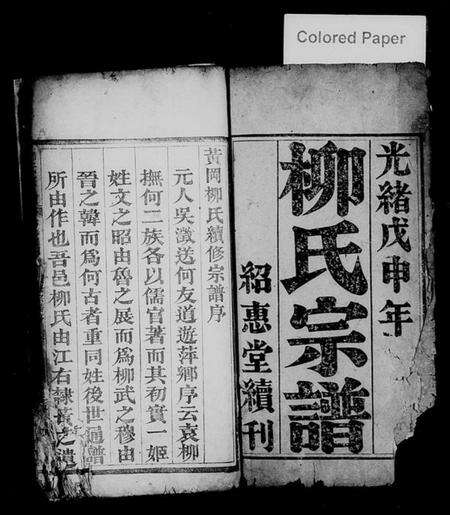 Colored Paper
光緒戊申年
柳氏宗譜
紹惠堂續刊
黃岡柳氏續修宗譜序
元人吳澂送何友道遊萍鄉序云袁柳
撫何二族各以儒官著而其初實一姬
姓文之昭由魯之展而爲柳武之穆由
晉之韓而爲何古者重同姓後世通譜
所由作也吾邑柳氏由江右隸黃之遺